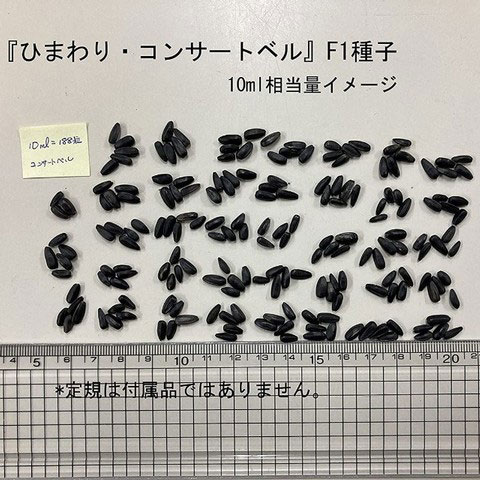 『ひまわり・コンサートベル』F1種子
10ml相当量イメージ
10ml=188粒
コンサートベル
4 5 10 11 12 13 14 15 16 17 18 19 20 21
*定規は付属品ではありません。